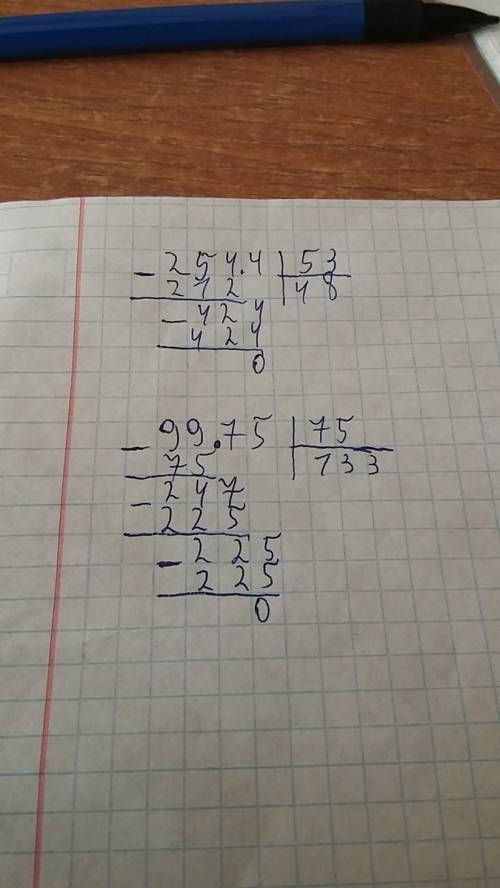 - 254.4 | 53
212 | 48
- 424
424
0
- 99.75 | 75
75 | 133
- 247
225
- 225
225
0